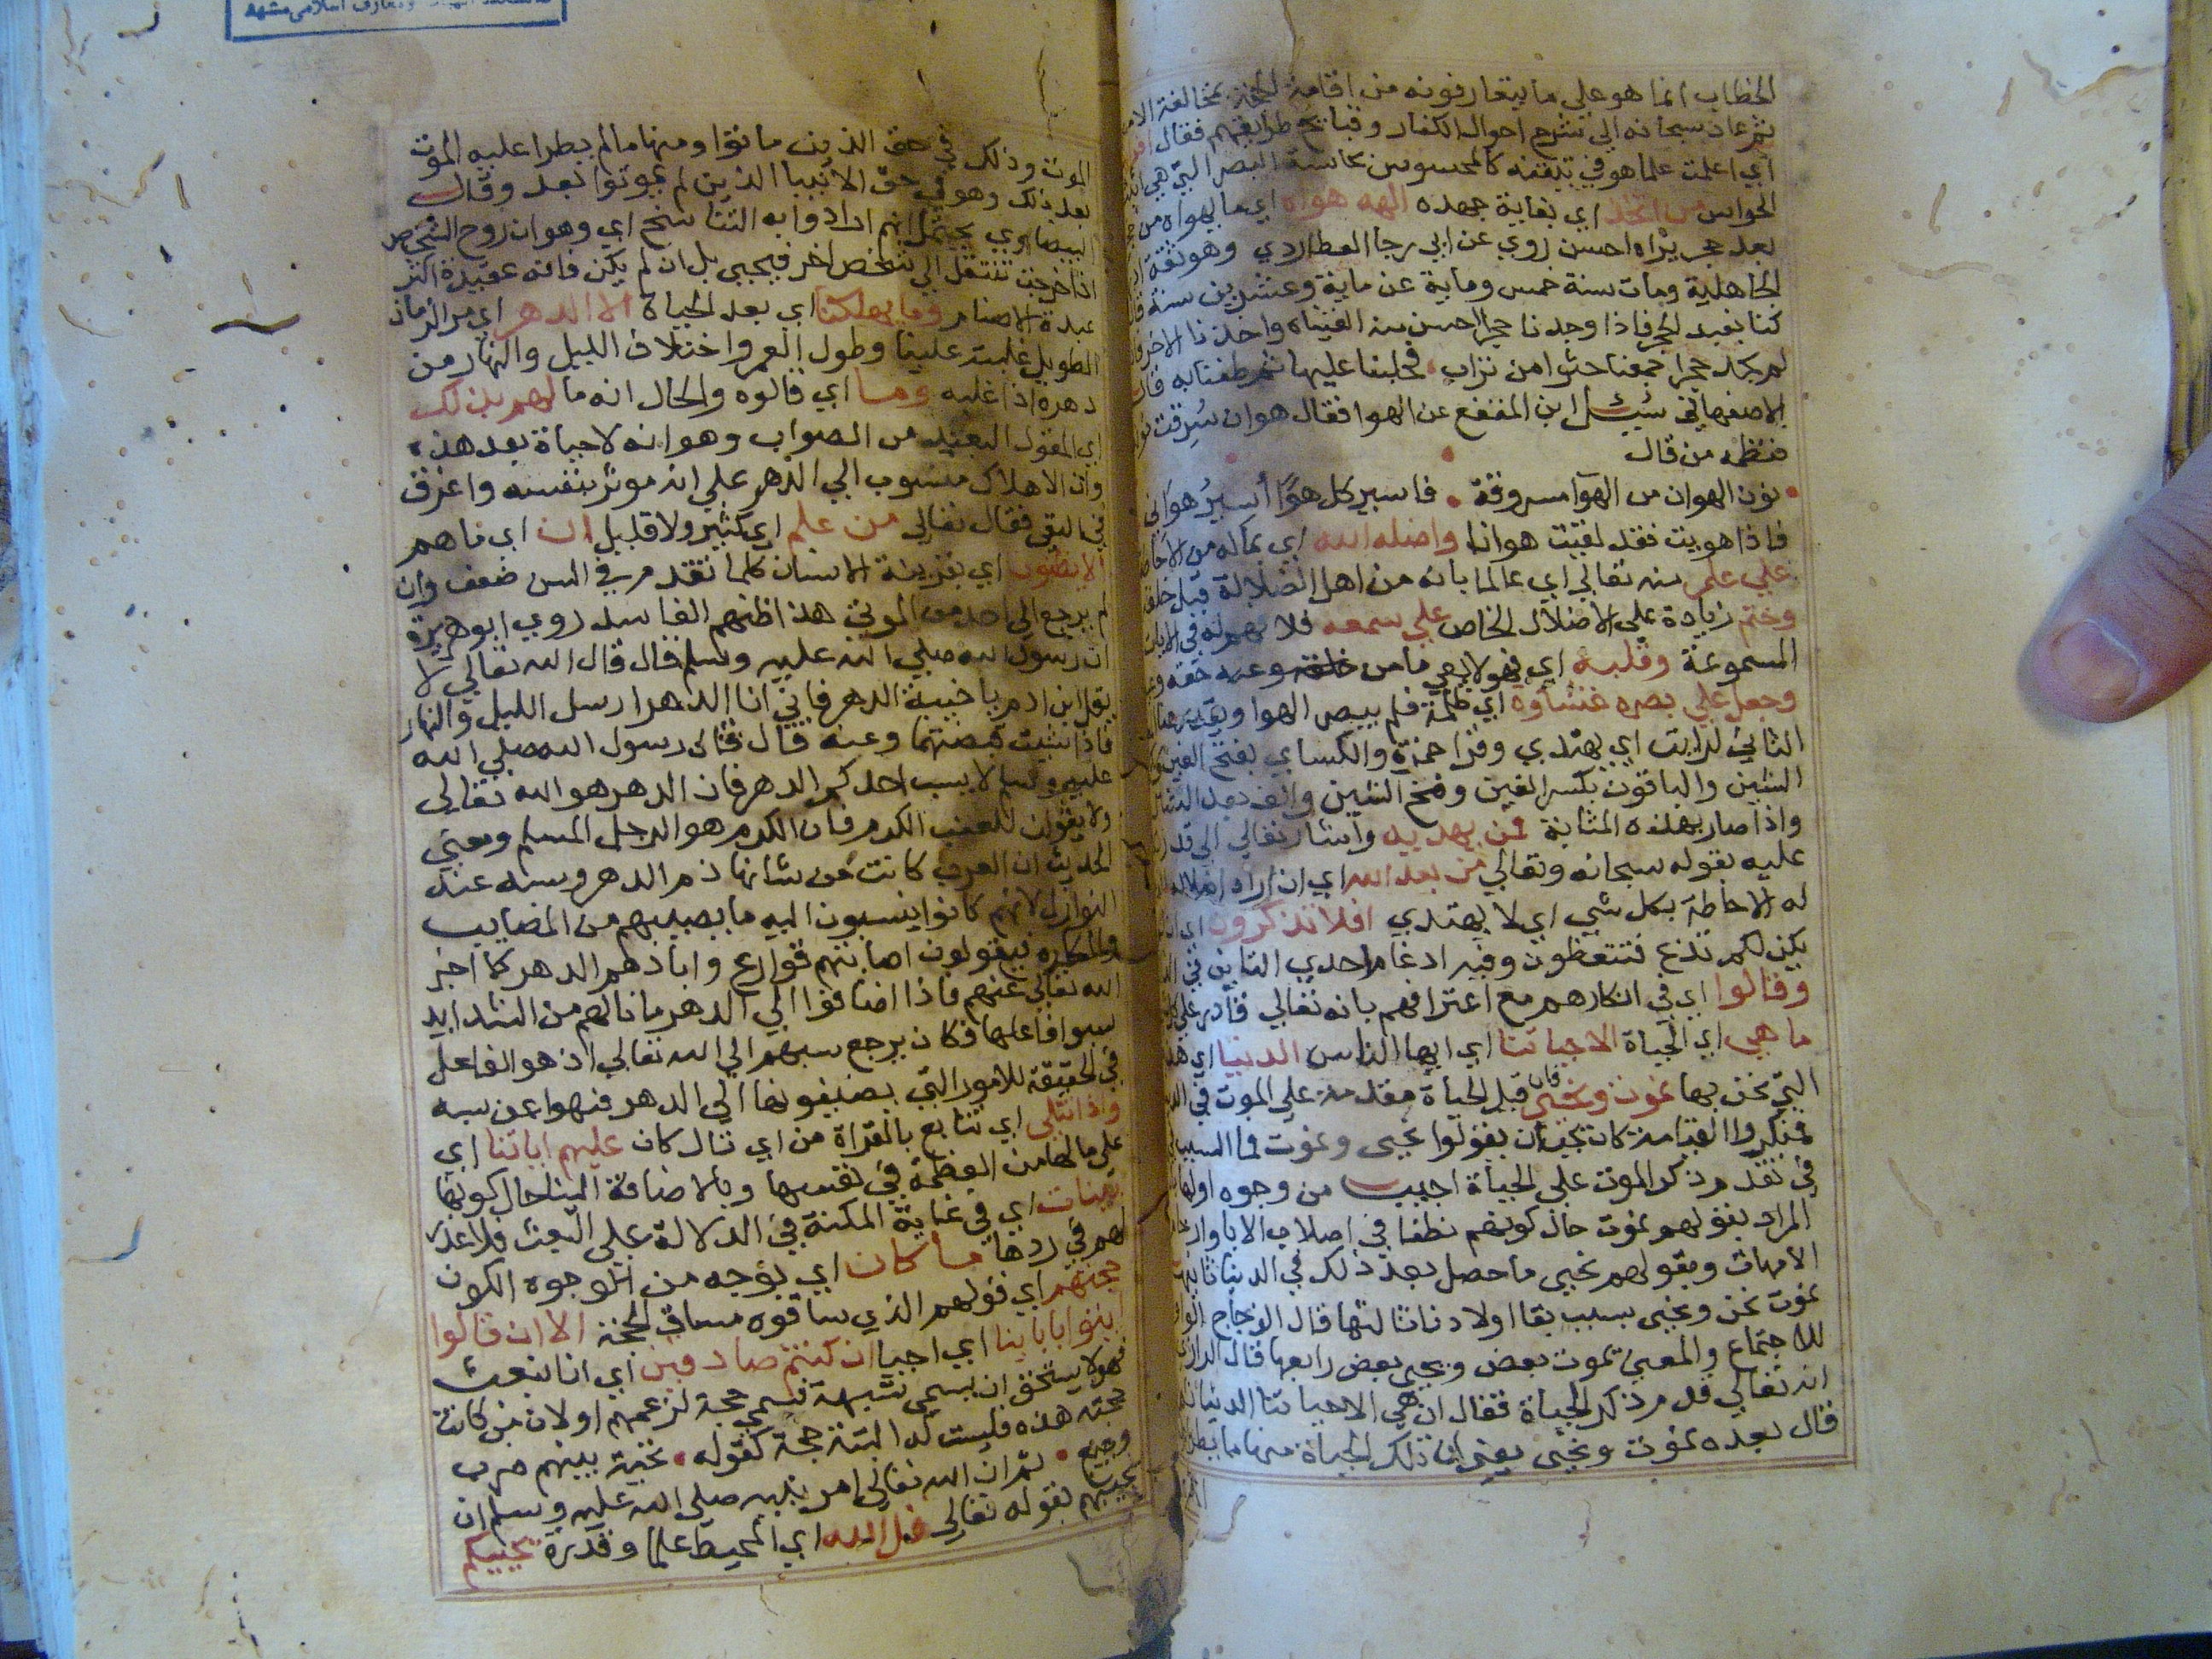 الخطاب انما هو علي ما يتعارفونه من اقامة الحجة بمخالفة الامر
ثم عاد سبحانه الي شرح احوال الكفار وقبائح طرايقهم فقال
اي اعلمت علما هو في تيقنه كالمحسوس بحاسة البصر التي هي
الحواس من اتخذ اي بغاية جهده الهه هواه اي ما يهواه من
بعد حجر يراه احسن روي عن ابي رجا العطاردي وهو ثقة
الجاهلية ومات سنة خمس وماية عن ماية وعشرين سنة
كنا نعبد الحجر فاذا وجدنا حجرا احسن منه القيناه واخذنا الاخر
لم نجد حجرا جمعنا حثوا من تراب فحلبنا عليها ثم طفنا به
الاصفهاني سئل ابن المقفع عن الهوا فقال هوان سرقت
فنظمه من قال
نون الهوان من الهوا مسروقة فاسير كل هوًا أسير هوان
فاذا هويت فقد لقيت هوانا واضله الله اي بماله من
علي علم منه تعالي اي عالما بانه من اهل الضلالة قبل
وختم زيادة علي الاضلال الخاص علي سمعه فلا فهم له في
المسموعة وقلبه اي فهو لا يعي ما من حقه وعيه
وجعل علي بصره غشاوه اي ظلمة فلم يبصر الهوا
الثاني لرايت اي يهتدي وقرا حمزة والكساي بفتح الغين
الشين والباقون بكسر الغين وفتح الشين والف بعد الشين
واذا صار بهذه المثابة فمن يهديه واشار تعالي الي
عليه بقوله سبحانه وتعالي من بعد الله اي ان اراد
له الاحاطة بكل شي اي لا يهتدي افلا تذكرون
يكن لكم فتتعظون وفيه ادغام احدي التاين في
وقالوا اي في انكارهم مع اعترافهم بانه تعالي قادر
ما هي اي الحياة الا حياتنا اي ايها الناس الدنيا
التي نحن بها نموت ونحيي فان قبل الحياة مقدمة علي الموت في
فمنكروا القيامة كان يجب ان يقولوا نحيي ونموت فما السبب
في تقدم ذكر الموت علي الحياة اجيب من وجوه
المراد بقولهم نموت حال كونهم نطفا في اصلاب الابا
الامهات وبقولهم نحيي ما حصل بعد ذلك في الدنيا
نموت نحن ونحيي بسبب بقا اولادنا ثالثها قال الزجاج
للاجتماع والمعني يموت بعض ويحيي بعض رابعها قال الرازي
انه تعالي قدم ذكر الحياة فقال ان هي الا حياتنا الدنيا
قال بعده نموت ونحيي يعني ان تلك الحياة منها ما
الموت وذلك في حق الذين ماتوا ومنها ما لم يطرا عليه الموت
بعد ذلك وهو في حق الاحيا الذين لم يموتوا بعد وقال
البيضاوي يحتمل انهم ارادوا به التناسخ اي وهو ان روح الشخص
اذا خرجت تنتقل الي شخص اخر فيحيي بل ان لم يكن فانه عقيدة اكثر
عبدة الاصنام وما يهلكنا اي بعد الحياة الا الدهر اي مر الزمان
الطويل بغلبته علينا وطول العمر واختلاف الليل والنهار من
دهره اذا غلبه وما اي قالوه والحال انه ما لهم بذلك
اي القول البعيد من الصواب وهو انه لا حياة بعد هذه
وان الاهلاك منسوب الي الدهر علي انه موثر بنفسه واغرق
في النفي فقال تعالي من علم اي كثير ولا قليل ان اي ما هم
الا يظنون اي بقرينة الانسان كلما تقدم في السن ضعف وان
لم يرجع الي احد من الموتي هذا ظنهم الفاسد روي ابو هريرة
ان رسول الله صلي الله عليه وسلم قال قال الله تعالي لا
يقل ابن ادم يا خيبة الدهر فاني انا الدهر ارسل الليل والنهار
فاذا شيت قبضتهما وعنه قال قال رسول الله صلي الله
عليه وسلم لا يسب احدكم الدهر فان الدهر هو الله تعالي
ولا يقولن للعنب الكرم فان الكرم هو الرجل المسلم ومعني
الحديث ان العرب كانت من شانها ذم الدهر وسبه عند
النوازل لانهم كانوا ينسبون اليه ما يصيبهم من المصايب
والمكاره فيقولون اصابتهم قوارع وابادهم الدهر كما اخبر
الله تعالي عنهم فاذا اضافوا الي الدهر ما نالهم من الشدايد
سبوا فاعلها فكان يرجع سبهم الي الله تعالي اذ هو الفاعل
في الحقيقة للامور التي يضيفونها الي الدهر فنهوا عن سبه
واذا تتلي اي تتابع بالقراة من اي تال كان عليهم اياتنا اي
علي ما لها من العظمة في نفسها وبالاضافة الينا حال كونها
بينات اي في غاية المكنة في الدلالة علي البعث فلا عذر
لهم في ردها ما كان اي بوجه من الوجوه الكون
حجتهم اي قولهم الذي ساقوه مساق الحجة الا ان قالوا
ايتوا باباينا اي احيا ان كنتم صادقين اي انا نبعث
فهو لا يستحق ان يسمي شبهة فسمي حجة لزعمهم او لان من كانت
حجته هذه فليست له البتة حجة كقوله تحية بينهم ضرب
وجيع ثم ان الله تعالي امر نبيه صلي الله عليه وسلم ان
يجيبهم بقوله تعالي قل الله اي المحيط علما وقدرة يحييكم